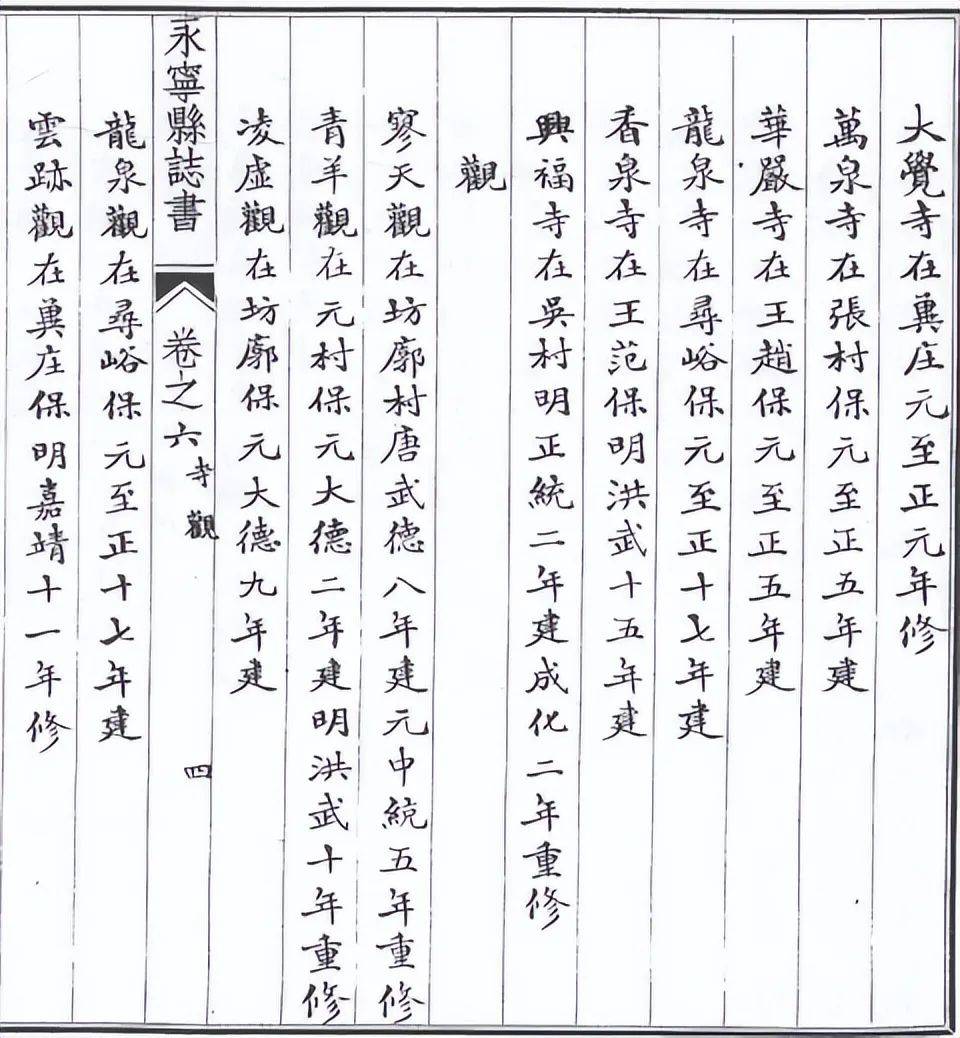 大覺寺在冀庄元至正元年修
萬泉寺在張村保元至正五年建
華嚴寺在王趙保元至正五年建
龍泉寺在尋峪保元至正十七年建
香泉寺在王范保明洪武十五年建
興福寺在吳村明正統二年建成化二年重修
觀
寥天觀在坊廓村唐武德八年建元中統五年重修
青羊觀在元村保元大德二年建明洪武十年重修
凌虛觀在坊廓保元大德九年建
永寧縣誌書 卷之六 寺觀 四
龍泉觀在尋峪保元至正十七年建
雲跡觀在冀庄保明嘉靖十一年修